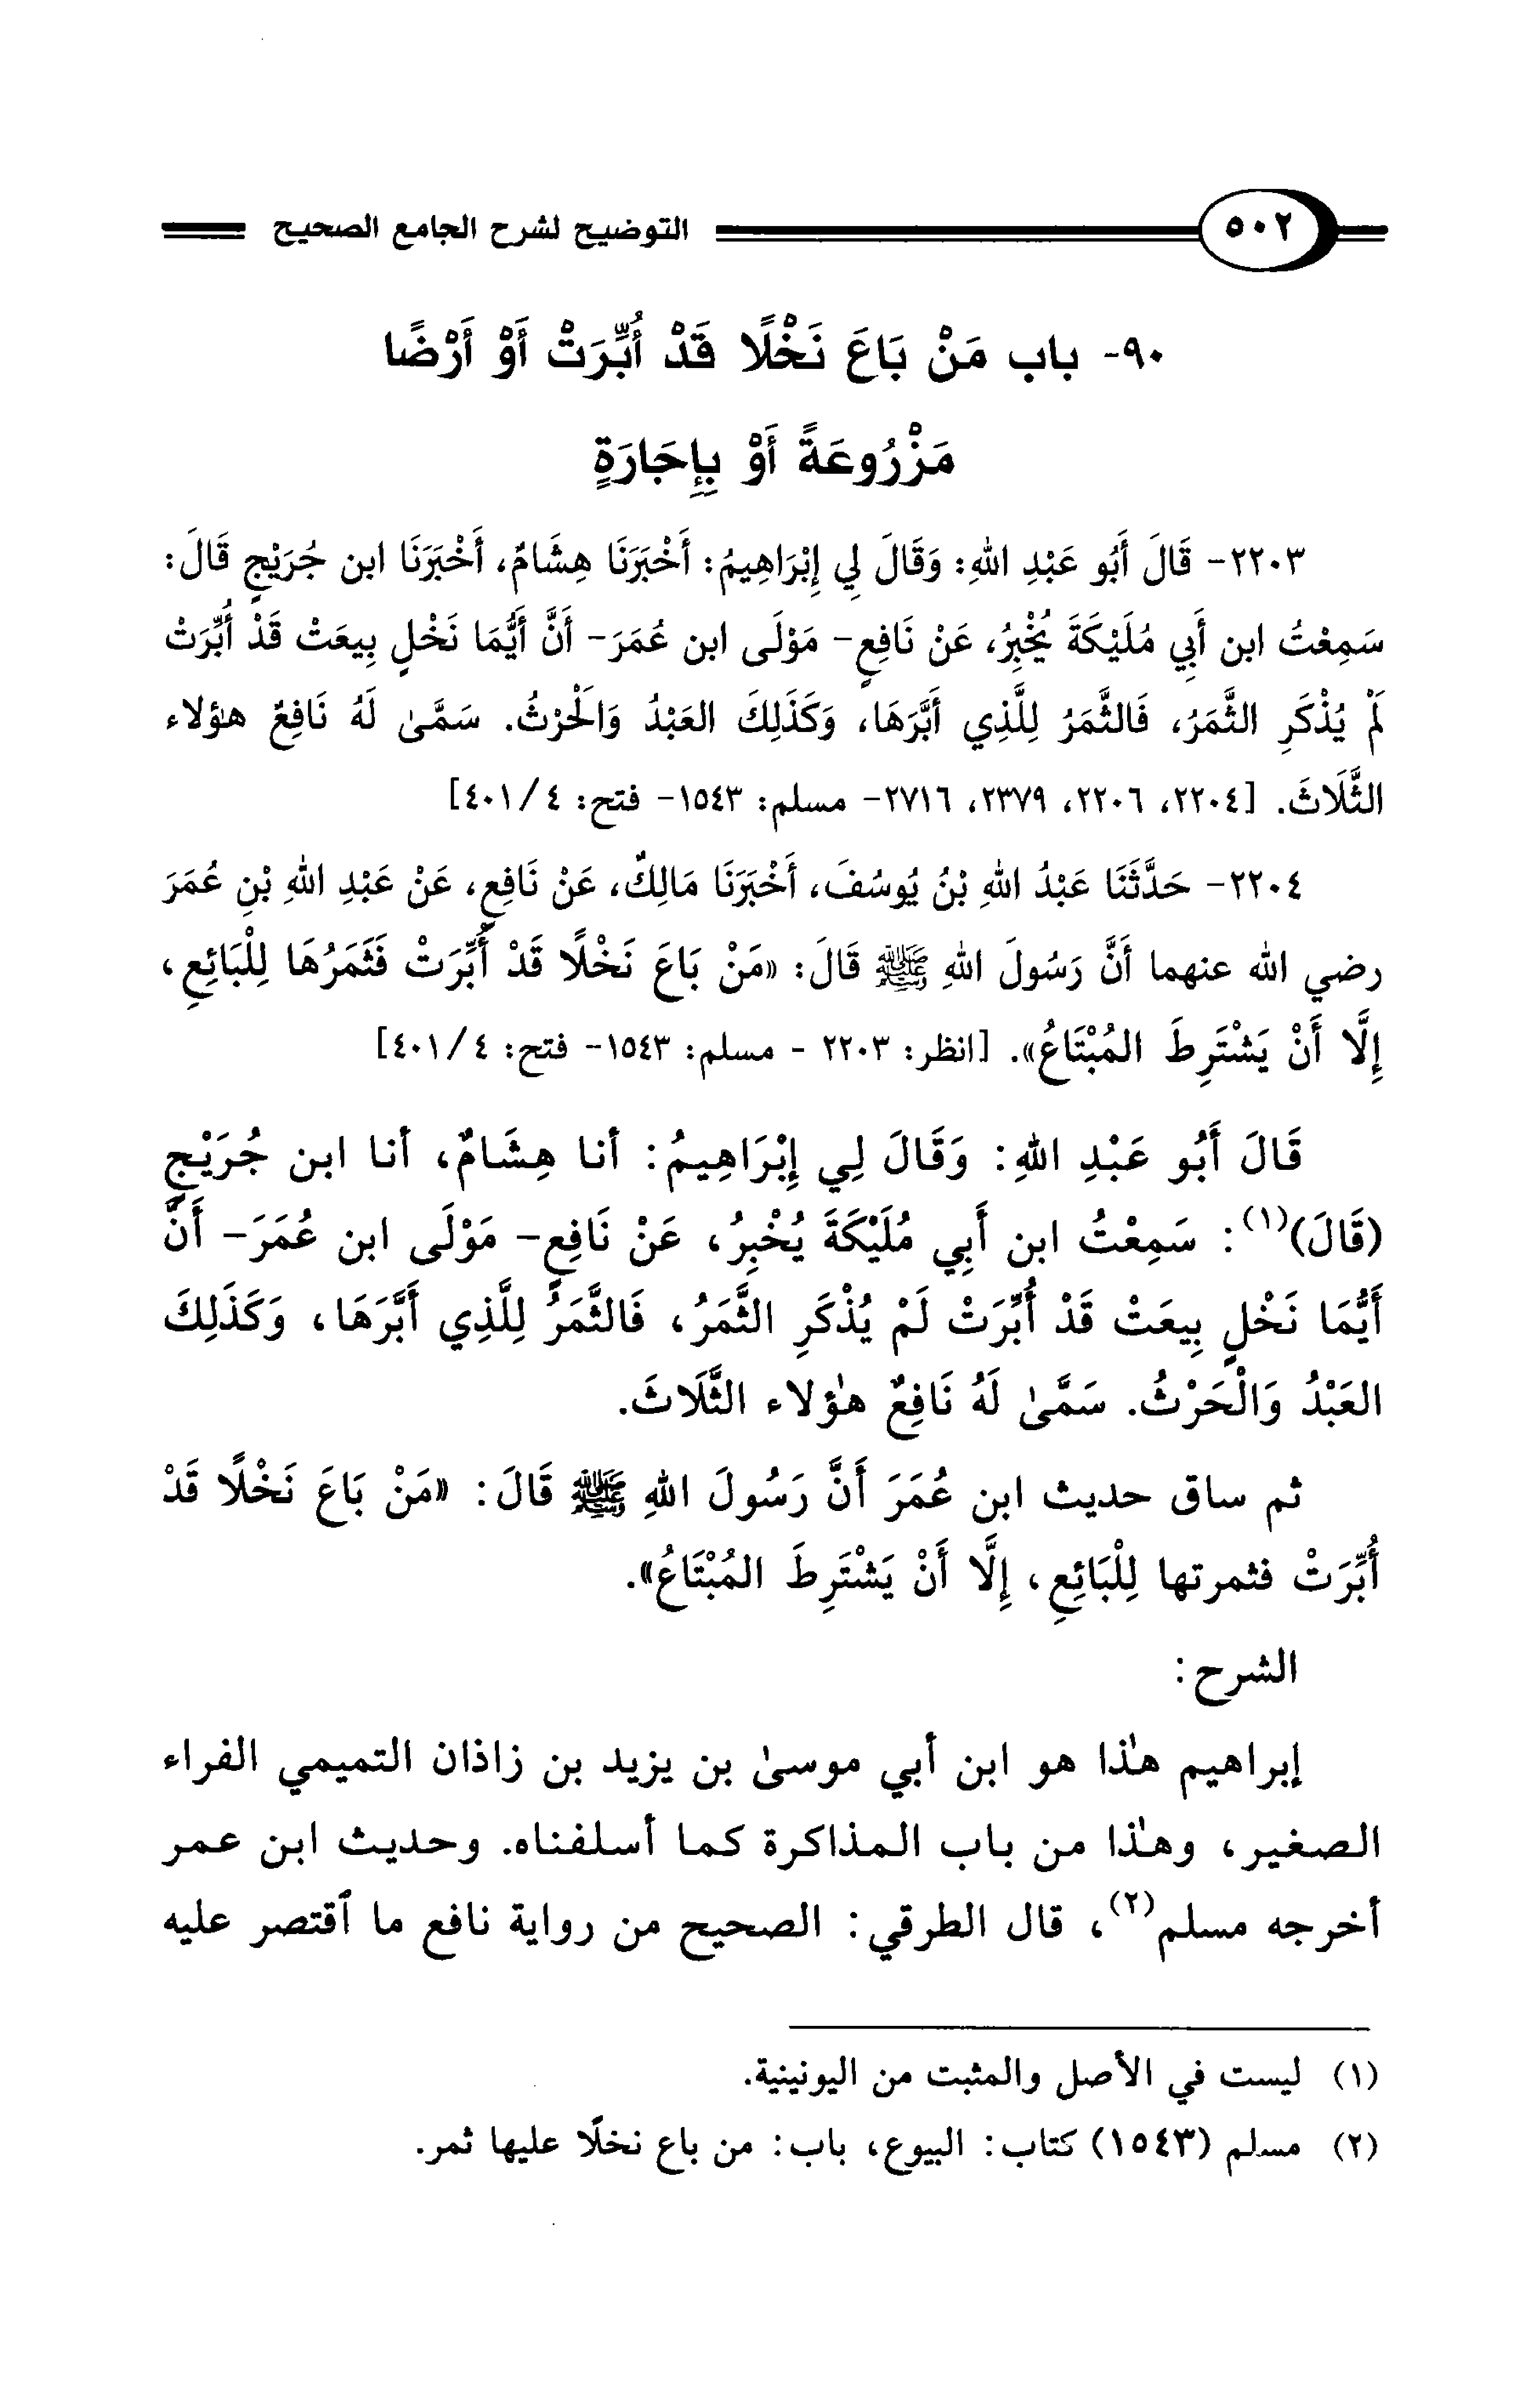 ٥٠٢ التوضيح لشرح الجامع الصحيح
٩٠- باب مَنْ بَاعَ نَخْلًا قَدْ أُبِّرَتْ أَوْ أَرْضًا
مَزْرُوعَةً أَوْ بِإِجَارَةٍ
٢٢٠٣- قَالَ أَبُو عَبْدِ اللهِ: وَقَالَ لِي إِبْرَاهِيمُ: أَخْبَرَنَا هِشَامٌ، أَخْبَرَنَا ابن جُرَيْجٍ قَالَ:
سَمِعْتُ ابن أَبِي مُلَيْكَةَ يُخْبِرُ، عَنْ نَافِعٍ- مَوْلَى ابن عُمَرَ- أَنَّ أَيُّمَا نَخْلٍ بِيعَتْ قَدْ أُبِّرَتْ
لَمْ يُذْكَرِ الثَّمَرُ، فَالثَّمَرُ لِلَّذِي أَبَّرَهَا، وَكَذَلِكَ العَبْدُ وَالْحَرْثُ. سَمَّىٰ لَهُ نَافِعٌ هؤلاء
الثَّلَاثَ. [٢٢٠٤، ٢٢٠٦، ٢٣٧٩، ٢٧١٦- مسلم: ١٥٤٣- فتح: ٤/ ٤٠١]
٢٢٠٤- حَدَّثَنَا عَبْدُ اللهِ بْنُ يُوسُفَ، أَخْبَرَنَا مَالِكٌ، عَنْ نَافِعٍ، عَنْ عَبْدِ اللهِ بْنِ عُمَرَ
رضي الله عنهما أَنَّ رَسُولَ اللهِ ﷺ قَالَ: «مَنْ بَاعَ نَخْلًا قَدْ أُبِّرَتْ فَثَمَرُهَا لِلْبَائِعِ،
إِلَّا أَنْ يَشْتَرِطَ المُبْتَاعُ». [انظر: ٢٢٠٣ - مسلم: ١٥٤٣- فتح: ٤/ ٤٠١]
قَالَ أَبُو عَبْدِ اللهِ: وَقَالَ لِي إِبْرَاهِيمُ: أنا هِشَامٌ، أنا ابن جُرَيْجٍ
(قَالَ)(١): سَمِعْتُ ابن أَبِي مُلَيْكَةَ يُخْبِرُ، عَنْ نَافِعٍ- مَوْلَى ابن عُمَرَ- أَنَّ
أَيُّمَا نَخْلٍ بِيعَتْ قَدْ أُبِّرَتْ لَمْ يُذْكَرِ الثَّمَرُ، فَالثَّمَرُ لِلَّذِي أَبَّرَهَا، وَكَذَلِكَ
العَبْدُ وَالْحَرْثُ. سَمَّىٰ لَهُ نَافِعٌ هؤلاء الثَّلَاثَ.
ثم ساق حديث ابن عُمَرَ أَنَّ رَسُولَ اللهِ ﷺ قَالَ: «مَنْ بَاعَ نَخْلًا قَدْ
أُبِّرَتْ فثمرتها لِلْبَائِعِ، إِلَّا أَنْ يَشْتَرِطَ المُبْتَاعُ».
الشرح:
إبراهيم هذا هو ابن أبي موسىٰ بن يزيد بن زاذان التميمي الفراء
الصغير، وهذا من باب المذاكرة كما أسلفناه. وحديث ابن عمر
أخرجه مسلم(٢)، قال الطرقي: الصحيح من رواية نافع ما ٱقتصر عليه
(١) ليست في الأصل والمثبت من اليونينية.
(٢) مسلم (١٥٤٣) كتاب: البيوع، باب: من باع نخلًا عليها ثمر.